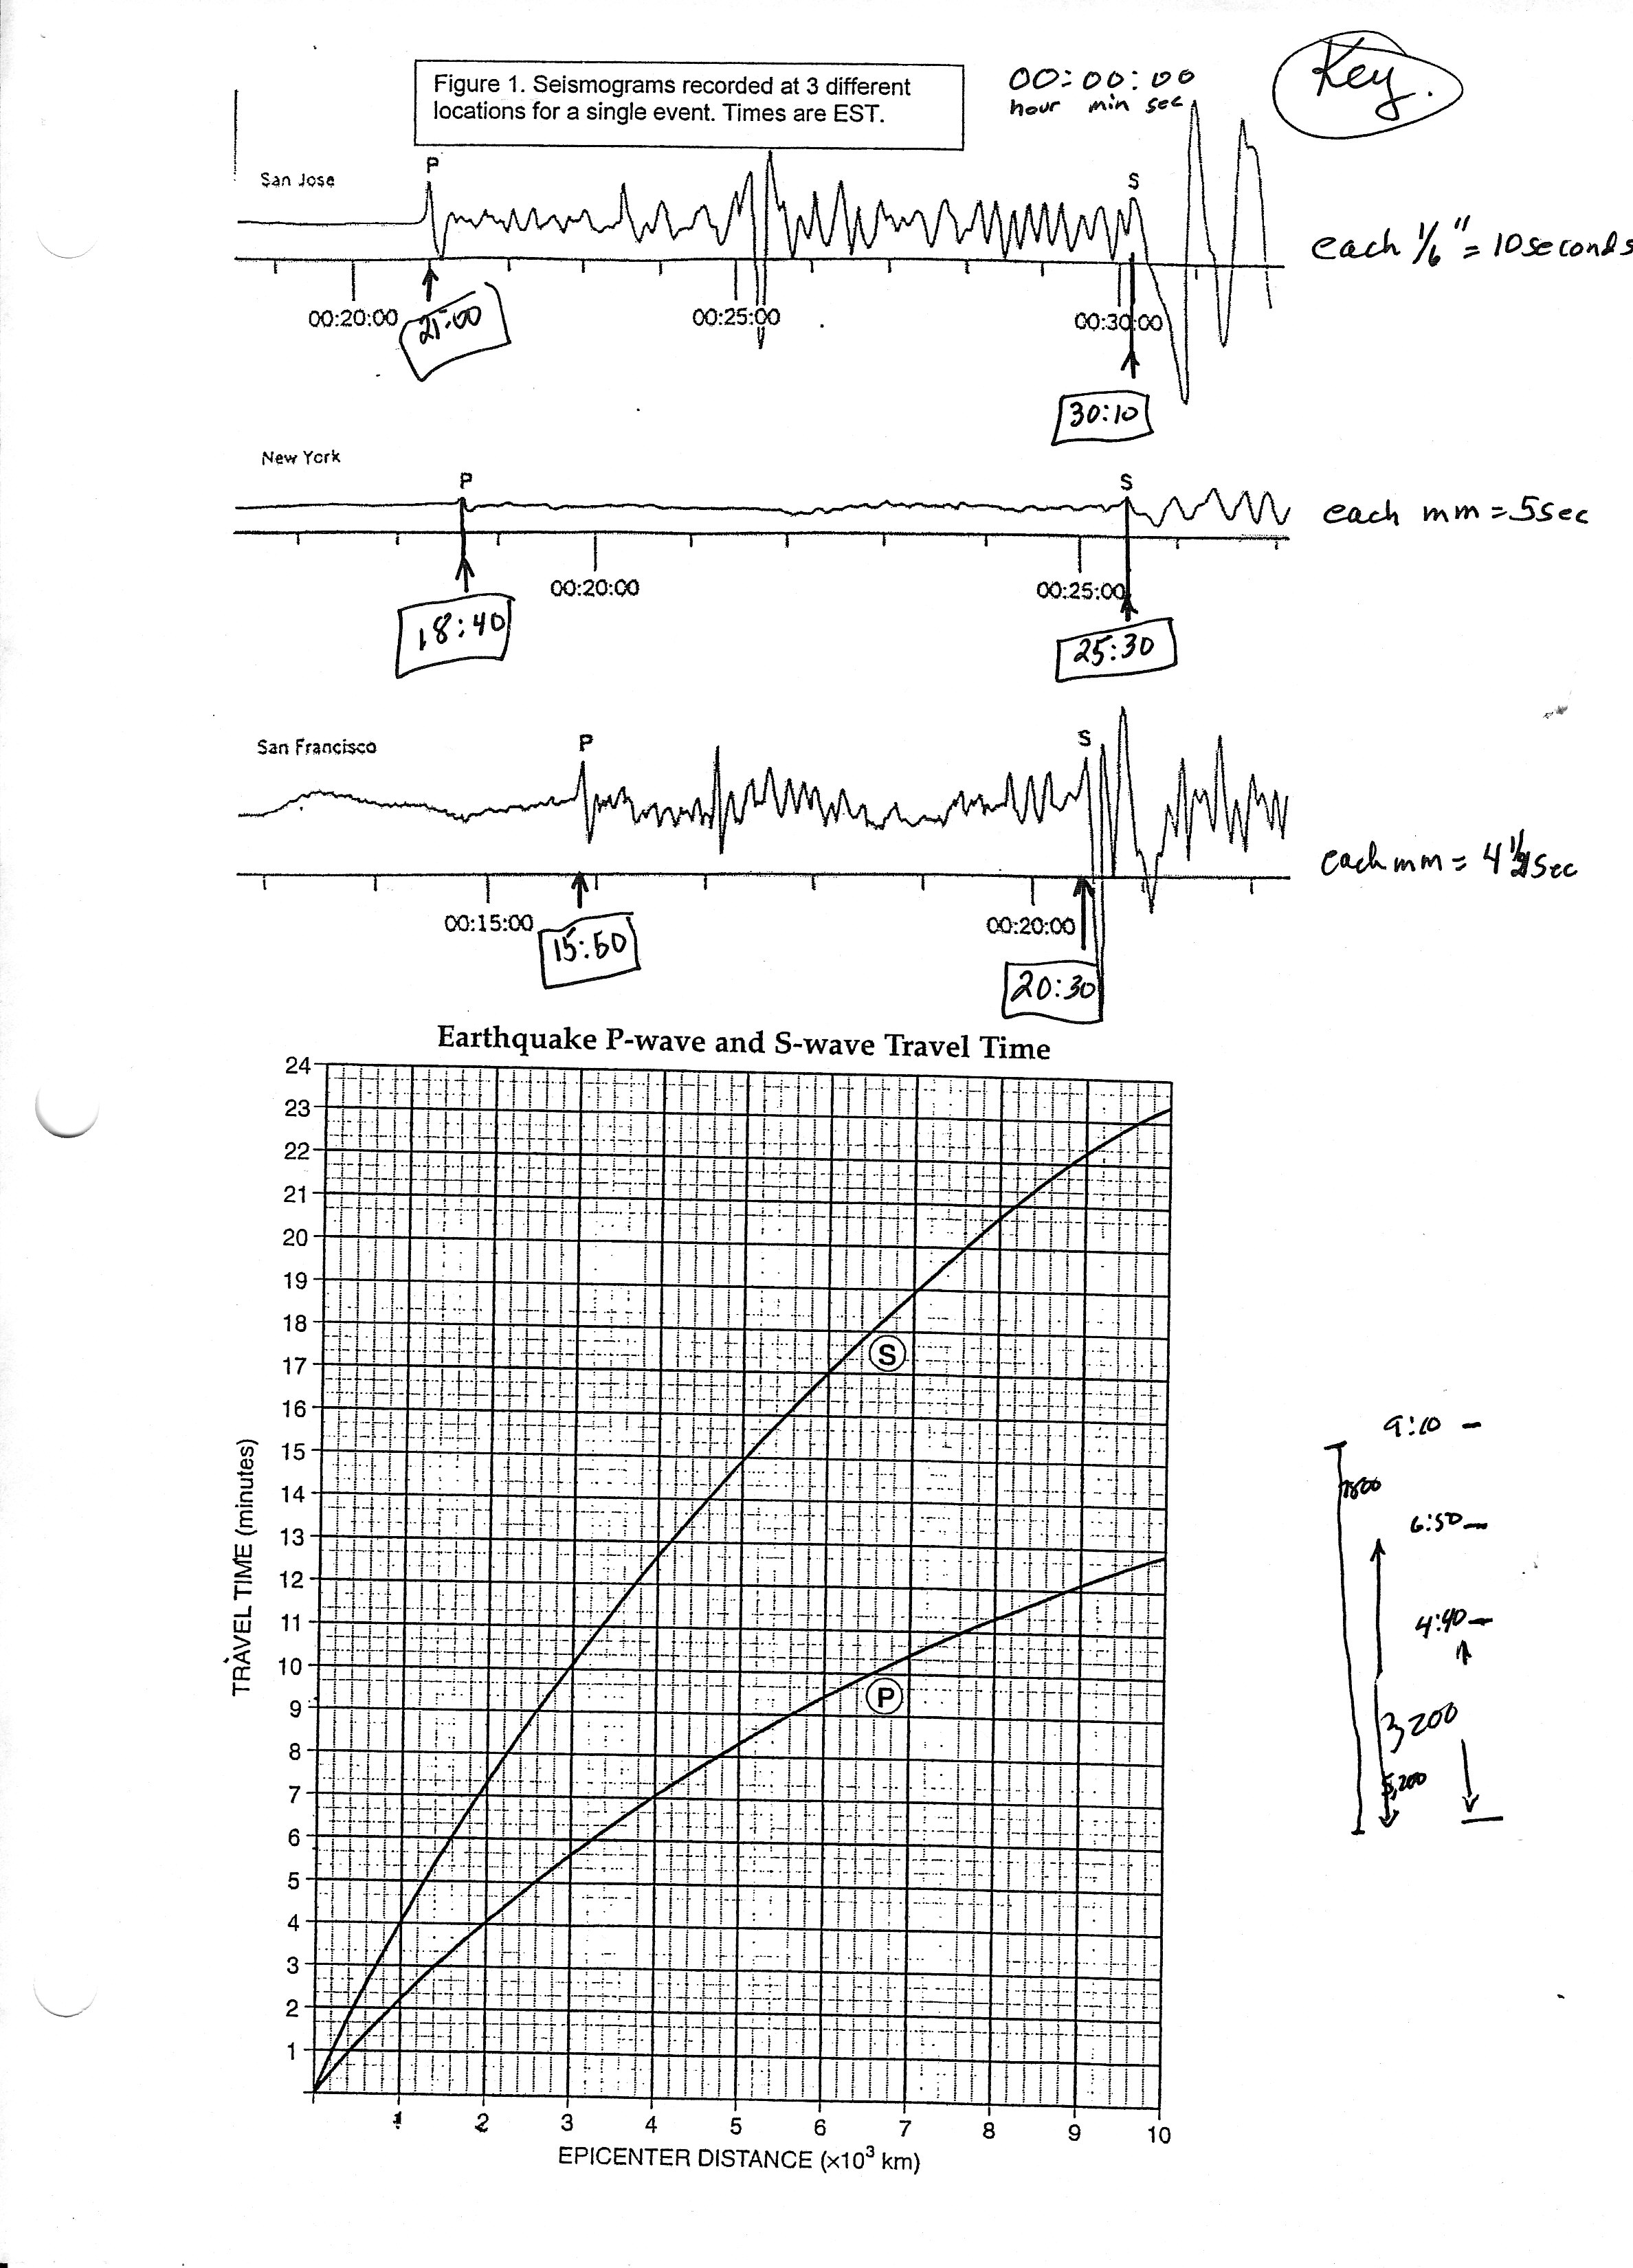 Figure 1. Seismograms recorded at 3 different
locations for a single event. Times are EST.
00:00:00
hour min sec
Key.
San Jose
P
S
each 1/6" = 10 seconds
00:20:00
00:25:00
00:30:00
21:00
30:10
New York
P
S
each mm = 5 sec
00:20:00
00:25:00
18:40
25:30
San Francisco
P
S
each mm = 4 1/2 sec
00:15:00
00:20:00
15:50
20:30
Earthquake P-wave and S-wave Travel Time
24
23
22
21
20
19
18
17
16
15
14
13
12
11
10
9
8
7
6
5
4
3
2
1
TRAVEL TIME (minutes)
S
P
1 2 3 4 5 6 7 8 9 10
EPICENTER DISTANCE (×10³ km)
9:10
7800
6:50
4:40
3,200
5,200